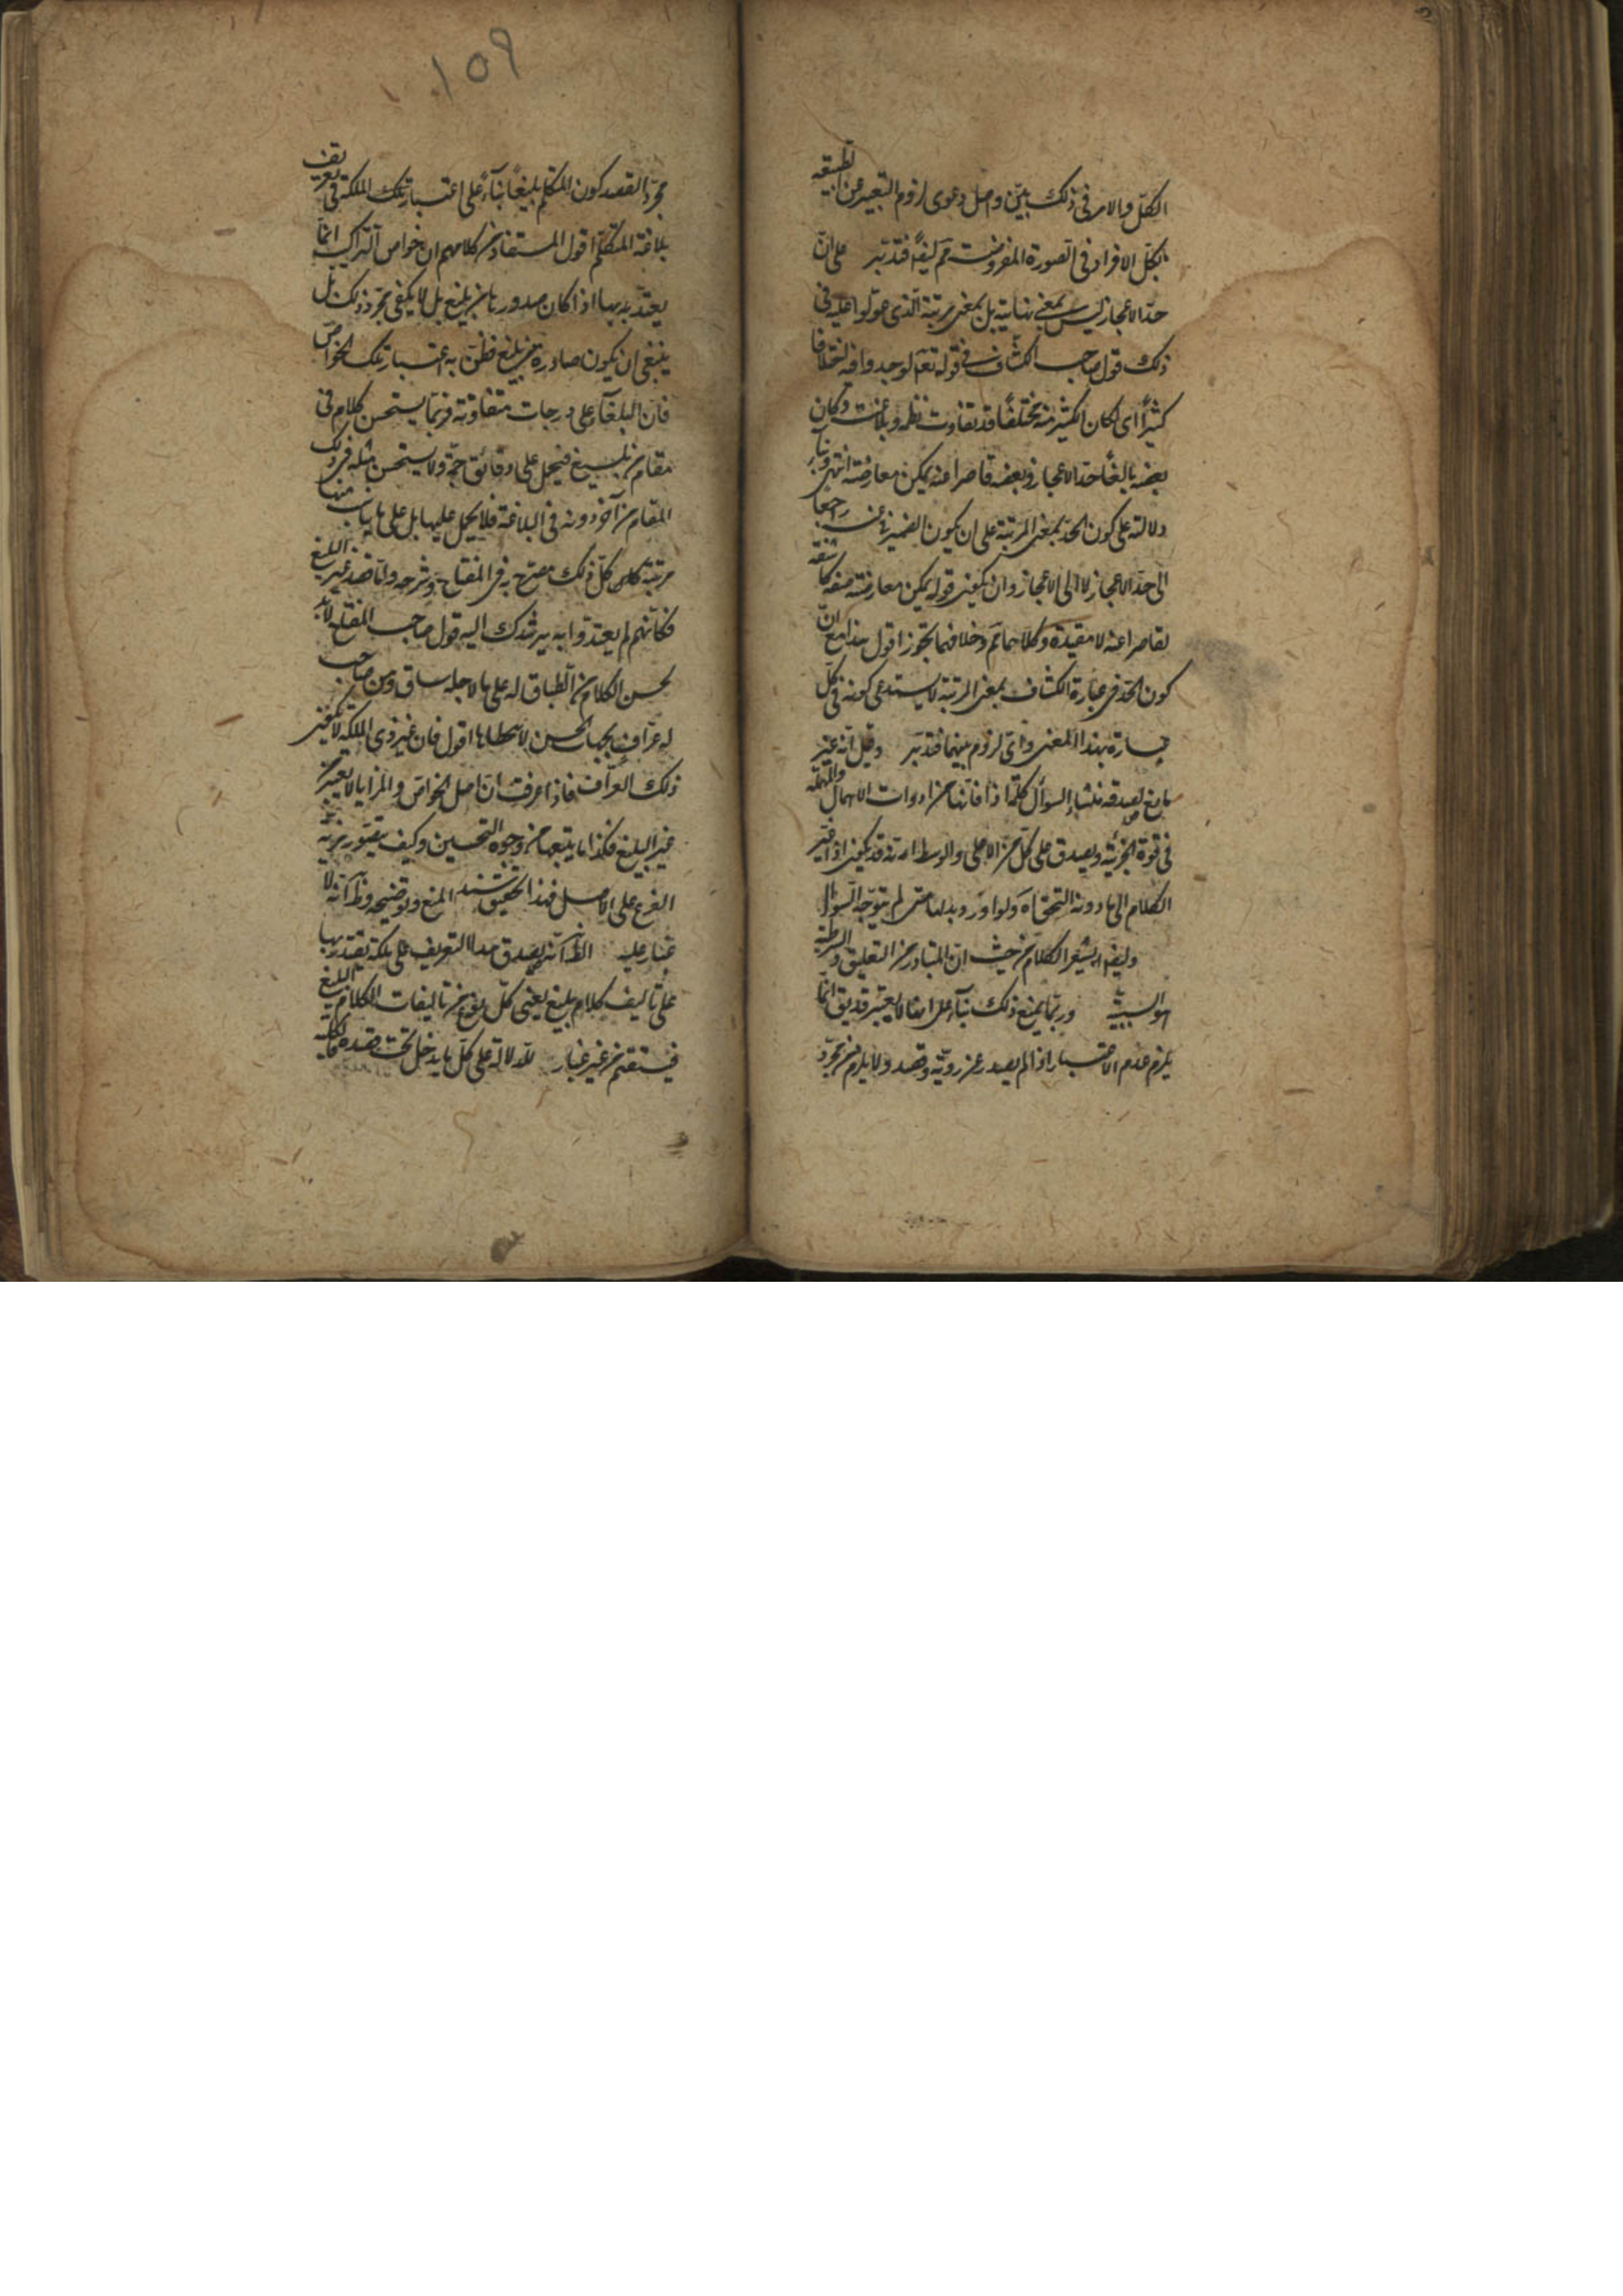 الكل والامر فى ذلك بين واصل دعوى لزوم التعبير عن الطبيعة
بكل الافراد فى الصورة المفروضة تم ايضا فتدبر على ان
حد الاعجاز ليس بمعنى نهايته بل بمعنى مرتبة الذى عولوا عليه فى
ذلك قول صاحب الكشاف فى قوله تعم لوجدوا فيه اختلافا
كثيرًا اى لكان الكثير منه مختلفًا قد تفاوت نظمه وبلاغته وكان
بعضه بالغًا حد الاعجاز وبعضه قاصرا عنه يمكن معارضته انتهى
دلالته على كون الحد بمعنى المرتبة على ان يكون الضمير فى عنه راجعا
الى حد الاعجاز لا الى الاعجاز وان يكون قوله يمكن معارضته صفة كاشفة
لقاصرا عنه لا مقيدة وكلاهما تم وخلافهما يجوز اقول هذا مع ان
كون الحد فى عبارة الكشاف بمعنى المرتبة لا يستدعى كونه فى كل
عبارة بهذا المعنى واى لزوم بينهما فتدبر وقيل انه غير
مانع لصدقه منشاء السوأل كلمة اذا فانها من ادوات الاهمال والمهملة
فى قوة الجزئية ويصدق على كل من الاعلى والوسط انه قد يكون اذا غير
الكلام الى ما دونه التحق اه ولو اورد بدلها متى لم يتوجه السؤال
وليفد او يشعر الكلام من حيث ان المتبادر من التعليق والشرطية
هو السببية وربما يمنع ذلك بناء على امثال يعتبر قد يق انما
يلزم عدم الاعتبار اذا لم يصدر عن روية وقصد ولا يلزم من مجرد
١٥٩
مجرد القصد كون المتكلم بليغًا بناءً على اعتبار تلك الملكة فى تعريف
بلاغة المتكلم اقول المستفاد من كلامهم ان خواص التراكيب انما
يعتد بها اذا كان صدورها من بليغ بل لا يكفى مجرد ذلك بل
ينبغى ان يكون صادرة عن بليغ ظن به اعتبار تلك الخواص
فان البلغآء على درجات متفاوتة فربما يستحسن كلام فى
مقام من بليغ فيحمل على دقائق جمة ولا يستحسن مثله فى ذلك
المقام من آخر دونه فى البلاغة فلا يحمل عليها بل على ما يناسب منها
مرتبة كلامه كل ذلك مصرح به فى المفتاح وشرحه واما قصد غير البليغ
فكانهم لم يعتدوا به يرشدك اليه قول صاحب المفتاح لا بد
لحسن الكلام من انطباق له على ما لاجله يساق ومن صاحب
له عراف بجهات الحسن لا يتخطاها اقول فان غير ذوى الملكة لا يكون
ذلك العراف فاذا عرفت ان اصل الخواص والمزايا لا يعتبر من
غير البليغ فكذا ما يتبعها من وجوه التحسين وكيف يتصور مزية
الفرع على الاصل فهذا تحقيق سند المنع وتوضيحه وظ انه لا
غبار عليه الظ انه يصدق هذا التعريف على ملكة يقتدر بها
على تاليف كلام بليغ يعنى كل نوع من تاليفات الكلام البليغ
فيستقيم من غير غبار للدلالة على كل ما يدخل تحت قصد